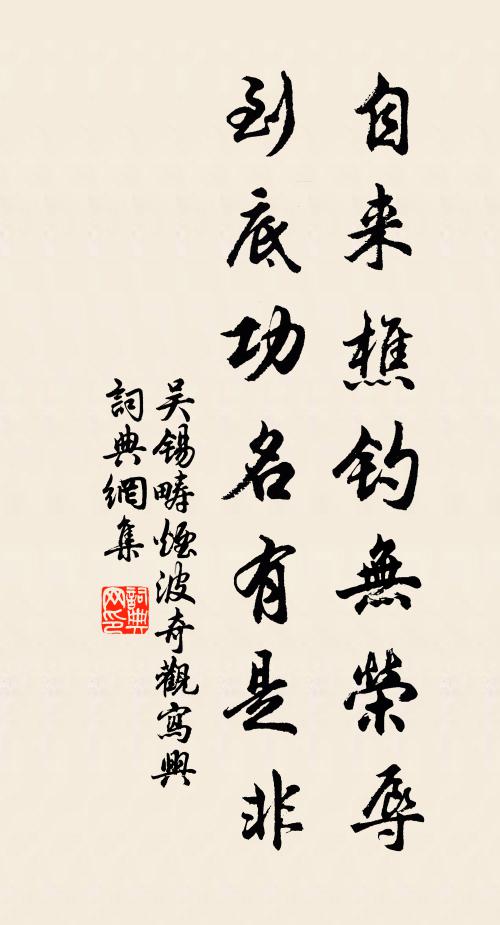 自来樵釣無榮辱
到底功名有是非
吴錫疇煙波奇觀寫興
詞典網集
詞典網印